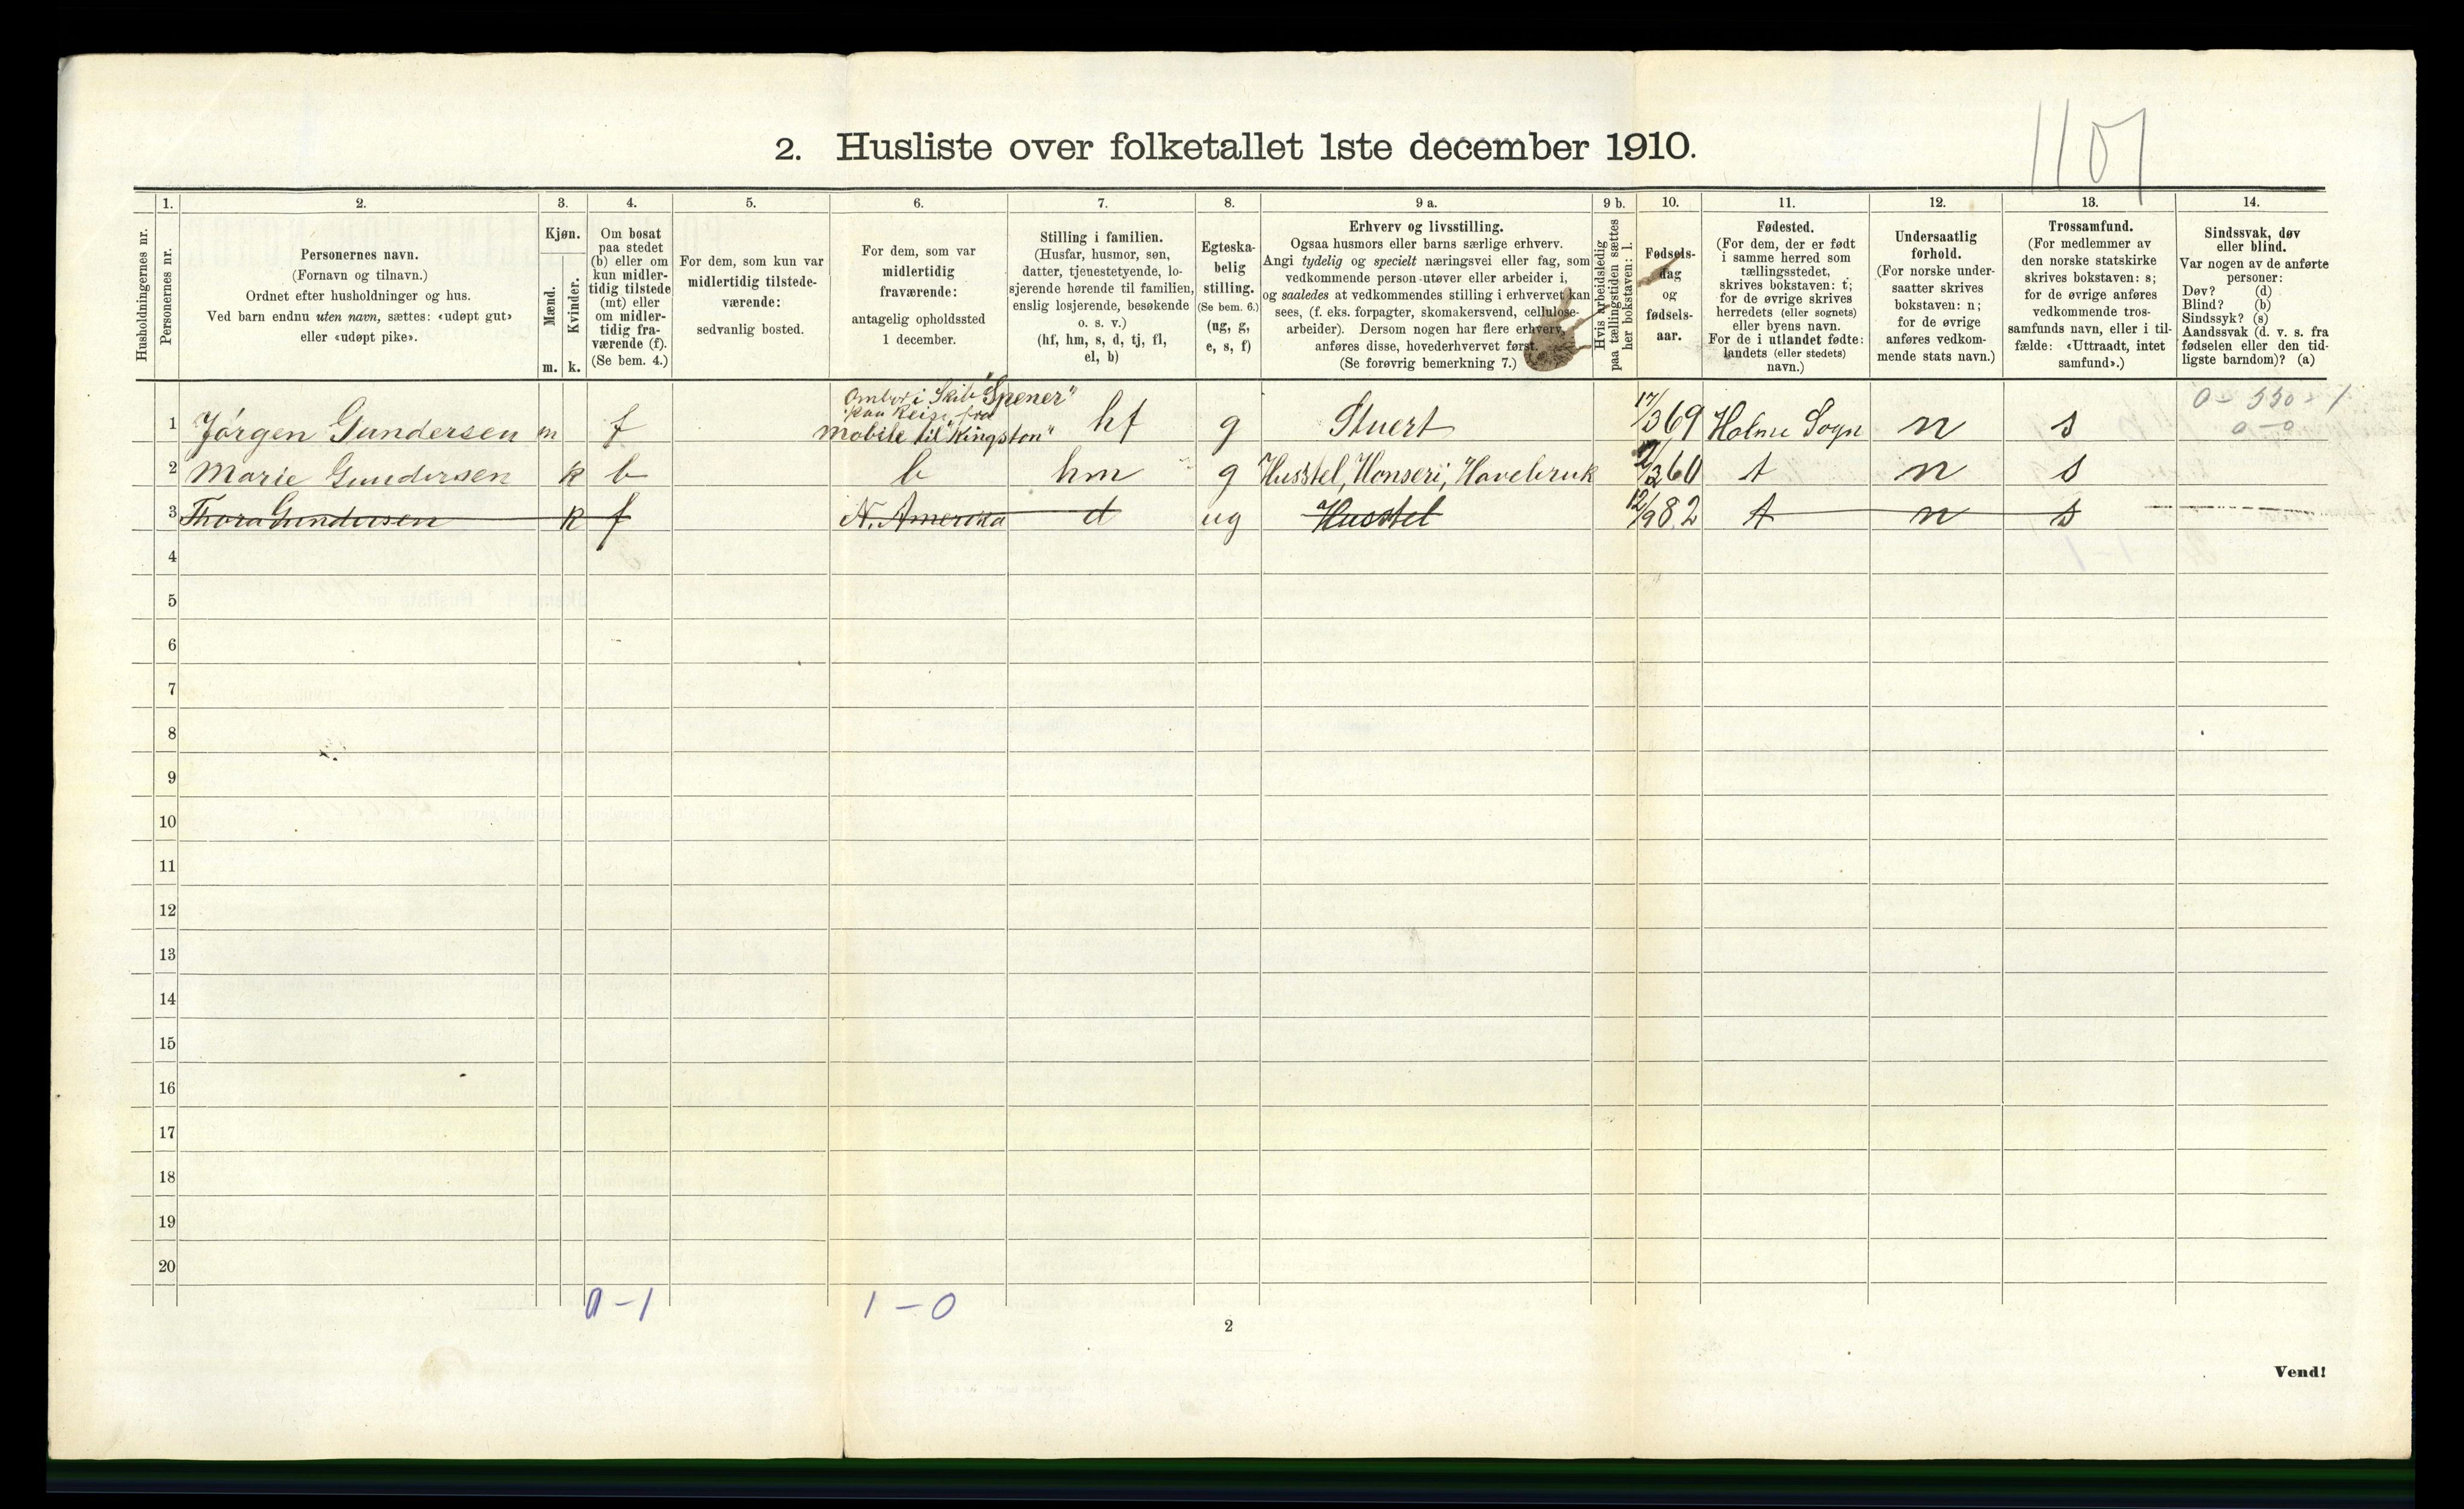 1107
2. Husliste over folketallet 1ste december 1910.
1. 2. 3. 4. 5. 6. 7. 8. 9 a. 9 b. 10. 11. 12. 13. 14.
Husholdningernes nr.
Personernes nr.
Personernes navn.
(Fornavn og tilnavn.)
Ordnet efter husholdninger og hus.
Ved barn endnu uten navn, sættes: «udøpt gut»
eller «udøpt pike».
Kjøn.
Mænd.
Kvinder.
m. k.
Om bosat
paa stedet
(b) eller om
kun midler-
tidig tilstede
(mt) eller
om midler-
tidig fra-
værende (f).
(Se bem. 4.)
For dem, som kun var
midlertidig tilstede-
værende:
sedvanlig bosted.
For dem, som var
midlertidig
fraværende:
antagelig opholdssted
1 december.
Stilling i familien.
(Husfar, husmor, søn,
datter, tjenestetyende, lo-
sjerende hørende til familien,
enslig losjerende, besøkende
o. s. v.)
(hf, hm, s, d, tj, fl,
el, b)
Egteska-
belig
stilling.
(Se bem. 6.)
(ug, g,
e, s, f)
Erhverv og livsstilling.
Ogsaa husmors eller barns særlige erhverv.
Angi tydelig og specielt næringsvei eller fag, som
vedkommende person utøver eller arbeider i,
og saaledes at vedkommendes stilling i erhvervet kan
sees, (f. eks. forpagter, skomakersvend, cellulose-
arbeider). Dersom nogen har flere erhverv,
anføres disse, hovederhvervet først.
(Se forøvrig bemerkning 7.)
Hvis arbeidsledig
paa tællingstiden sættes
her bokstaven: l.
Fødsels-
dag
og
fødsels-
aar.
Fødested.
(For dem, der er født
i samme herred som
tællingsstedet,
skrives bokstaven: t;
for de øvrige skrives
herredets (eller sognets)
eller byens navn.
For de i utlandet fødte:
landets (eller stedets)
navn.)
Undersaatlig
forhold.
(For norske under-
saatter skrives
bokstaven: n;
for de øvrige
anføres vedkom-
mende stats navn.)
Trossamfund.
(For medlemmer av
den norske statskirke
skrives bokstaven: s;
for de øvrige anføres
vedkommende tros-
samfunds navn, eller i til-
fælde: «Uttraadt, intet
samfund».)
Sindssvak, døv
eller blind.
Var nogen av de anførte
personer:
Døv? (d)
Blind? (b)
Sindssyk? (s)
Aandssvak (d. v. s. fra
fødselen eller den tid-
ligste barndom)? (a)
Ombor i Skib "Spener"
paa Reise fra
1 Jørgen Gundersen m f Mobile til "Kingston" hf g Stuert 17/3 69 Holme Sogn n s
0 - 550 - 1
0 - 0
2 Marie Gundersen k b b hm g Husstel, Honseri, Havebruk 60 t n s
3 Thora Gundersen k f N. Amerika d ug Husstel 12/9 82 t n s
4
5
6
7
8
9
10
11
12
13
14
15
16
17
18
19
20
0 - 1 1 - 0
2
Vend!